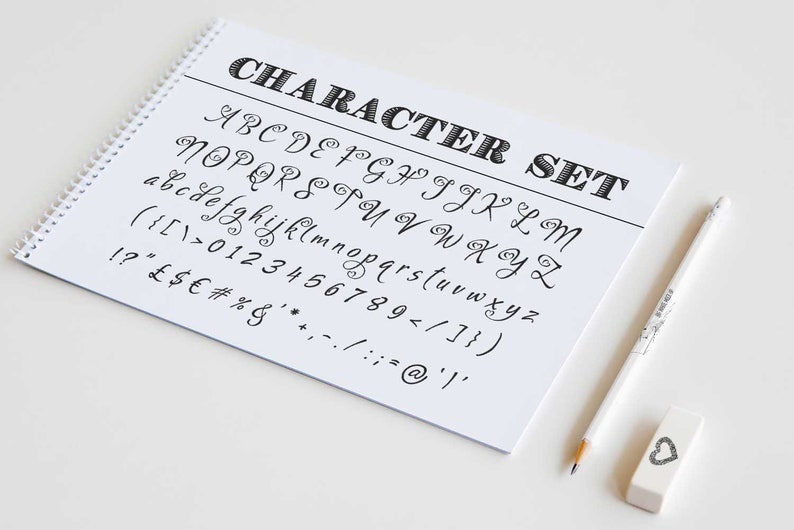 CHARACTER SET
ABCDEFGHIJKLM
NOPQRSTUVWXYZ
abcdefghijklmnopqrstuvwxyz
({[\>0123456789</]})
!?"£$€#%&'*+,-./:;=@'|'